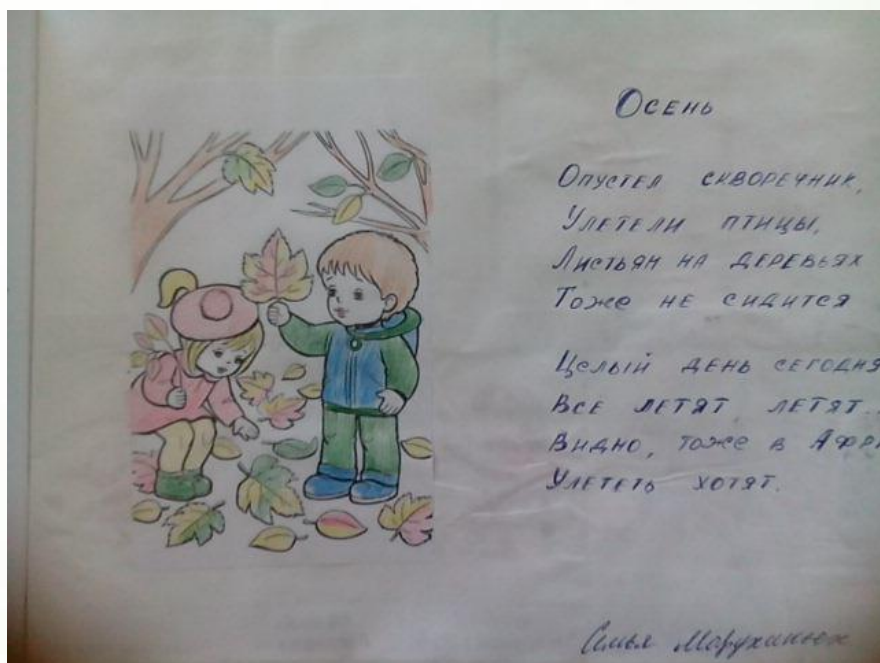 Осень
Опустел скворечник,
Улетели птицы,
Листьям на деревьях
Тоже не сидится
Целый день сегодня
Все летят, летят..
Видно, тоже в Афри
Улететь хотят.
Семья